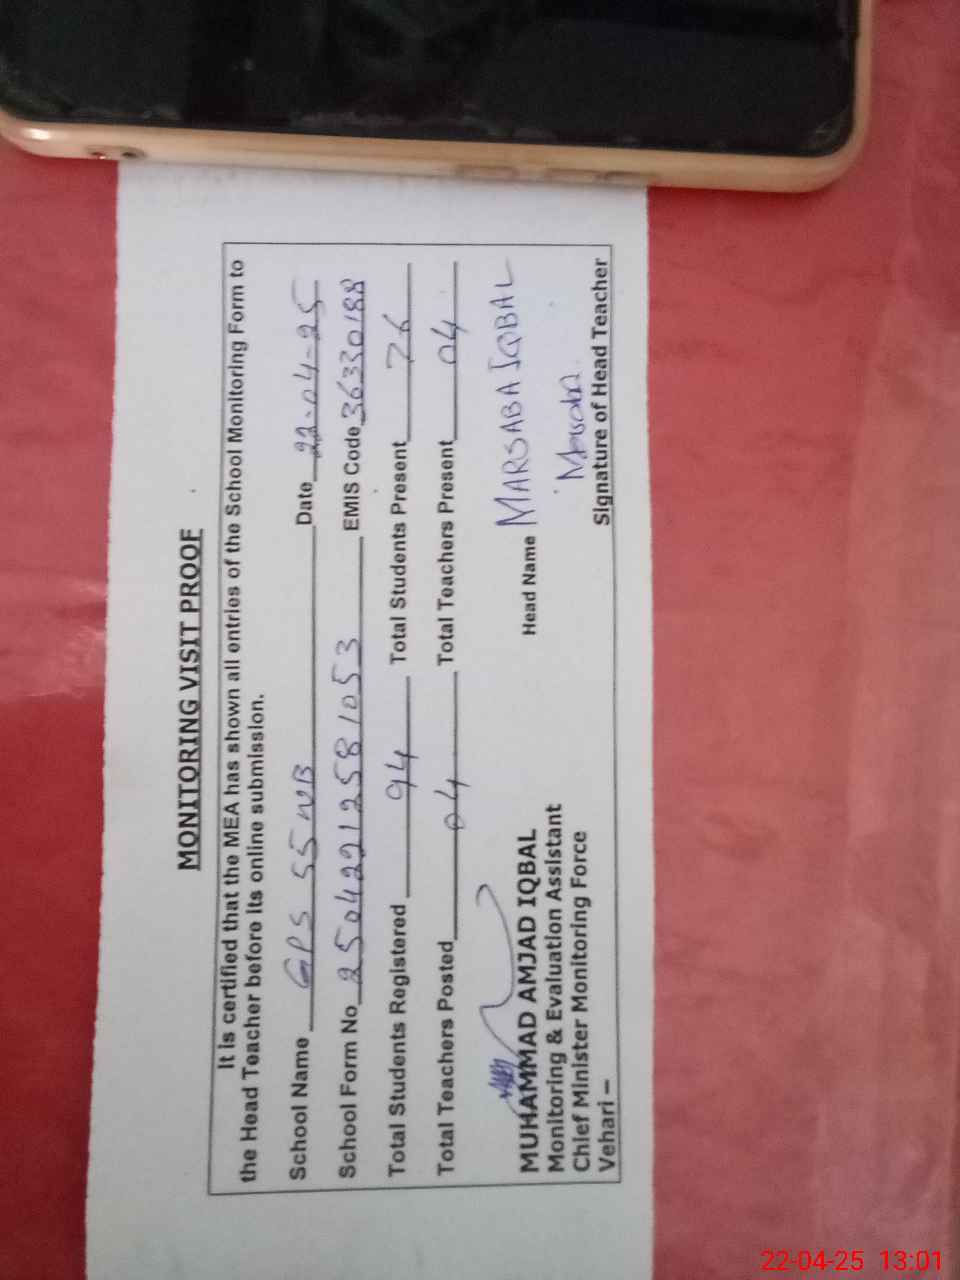 MONITORING VISIT PROOF
It is certified that the MEA has shown all entries of the School Monitoring Form to
the Head Teacher before its online submission.
School Name GPS 55 WB Date 22-04-25
School Form No 25042212581053 EMIS Code 36330188
Total Students Registered 94 Total Students Present 76
Total Teachers Posted 04 Total Teachers Present 04
Head Name MARSABA IQBAL
MUHAMMAD AMJAD IQBAL
Monitoring & Evaluation Assistant
Chief Minister Monitoring Force
Vehari –
Signature of Head Teacher
22-04-25 13:01